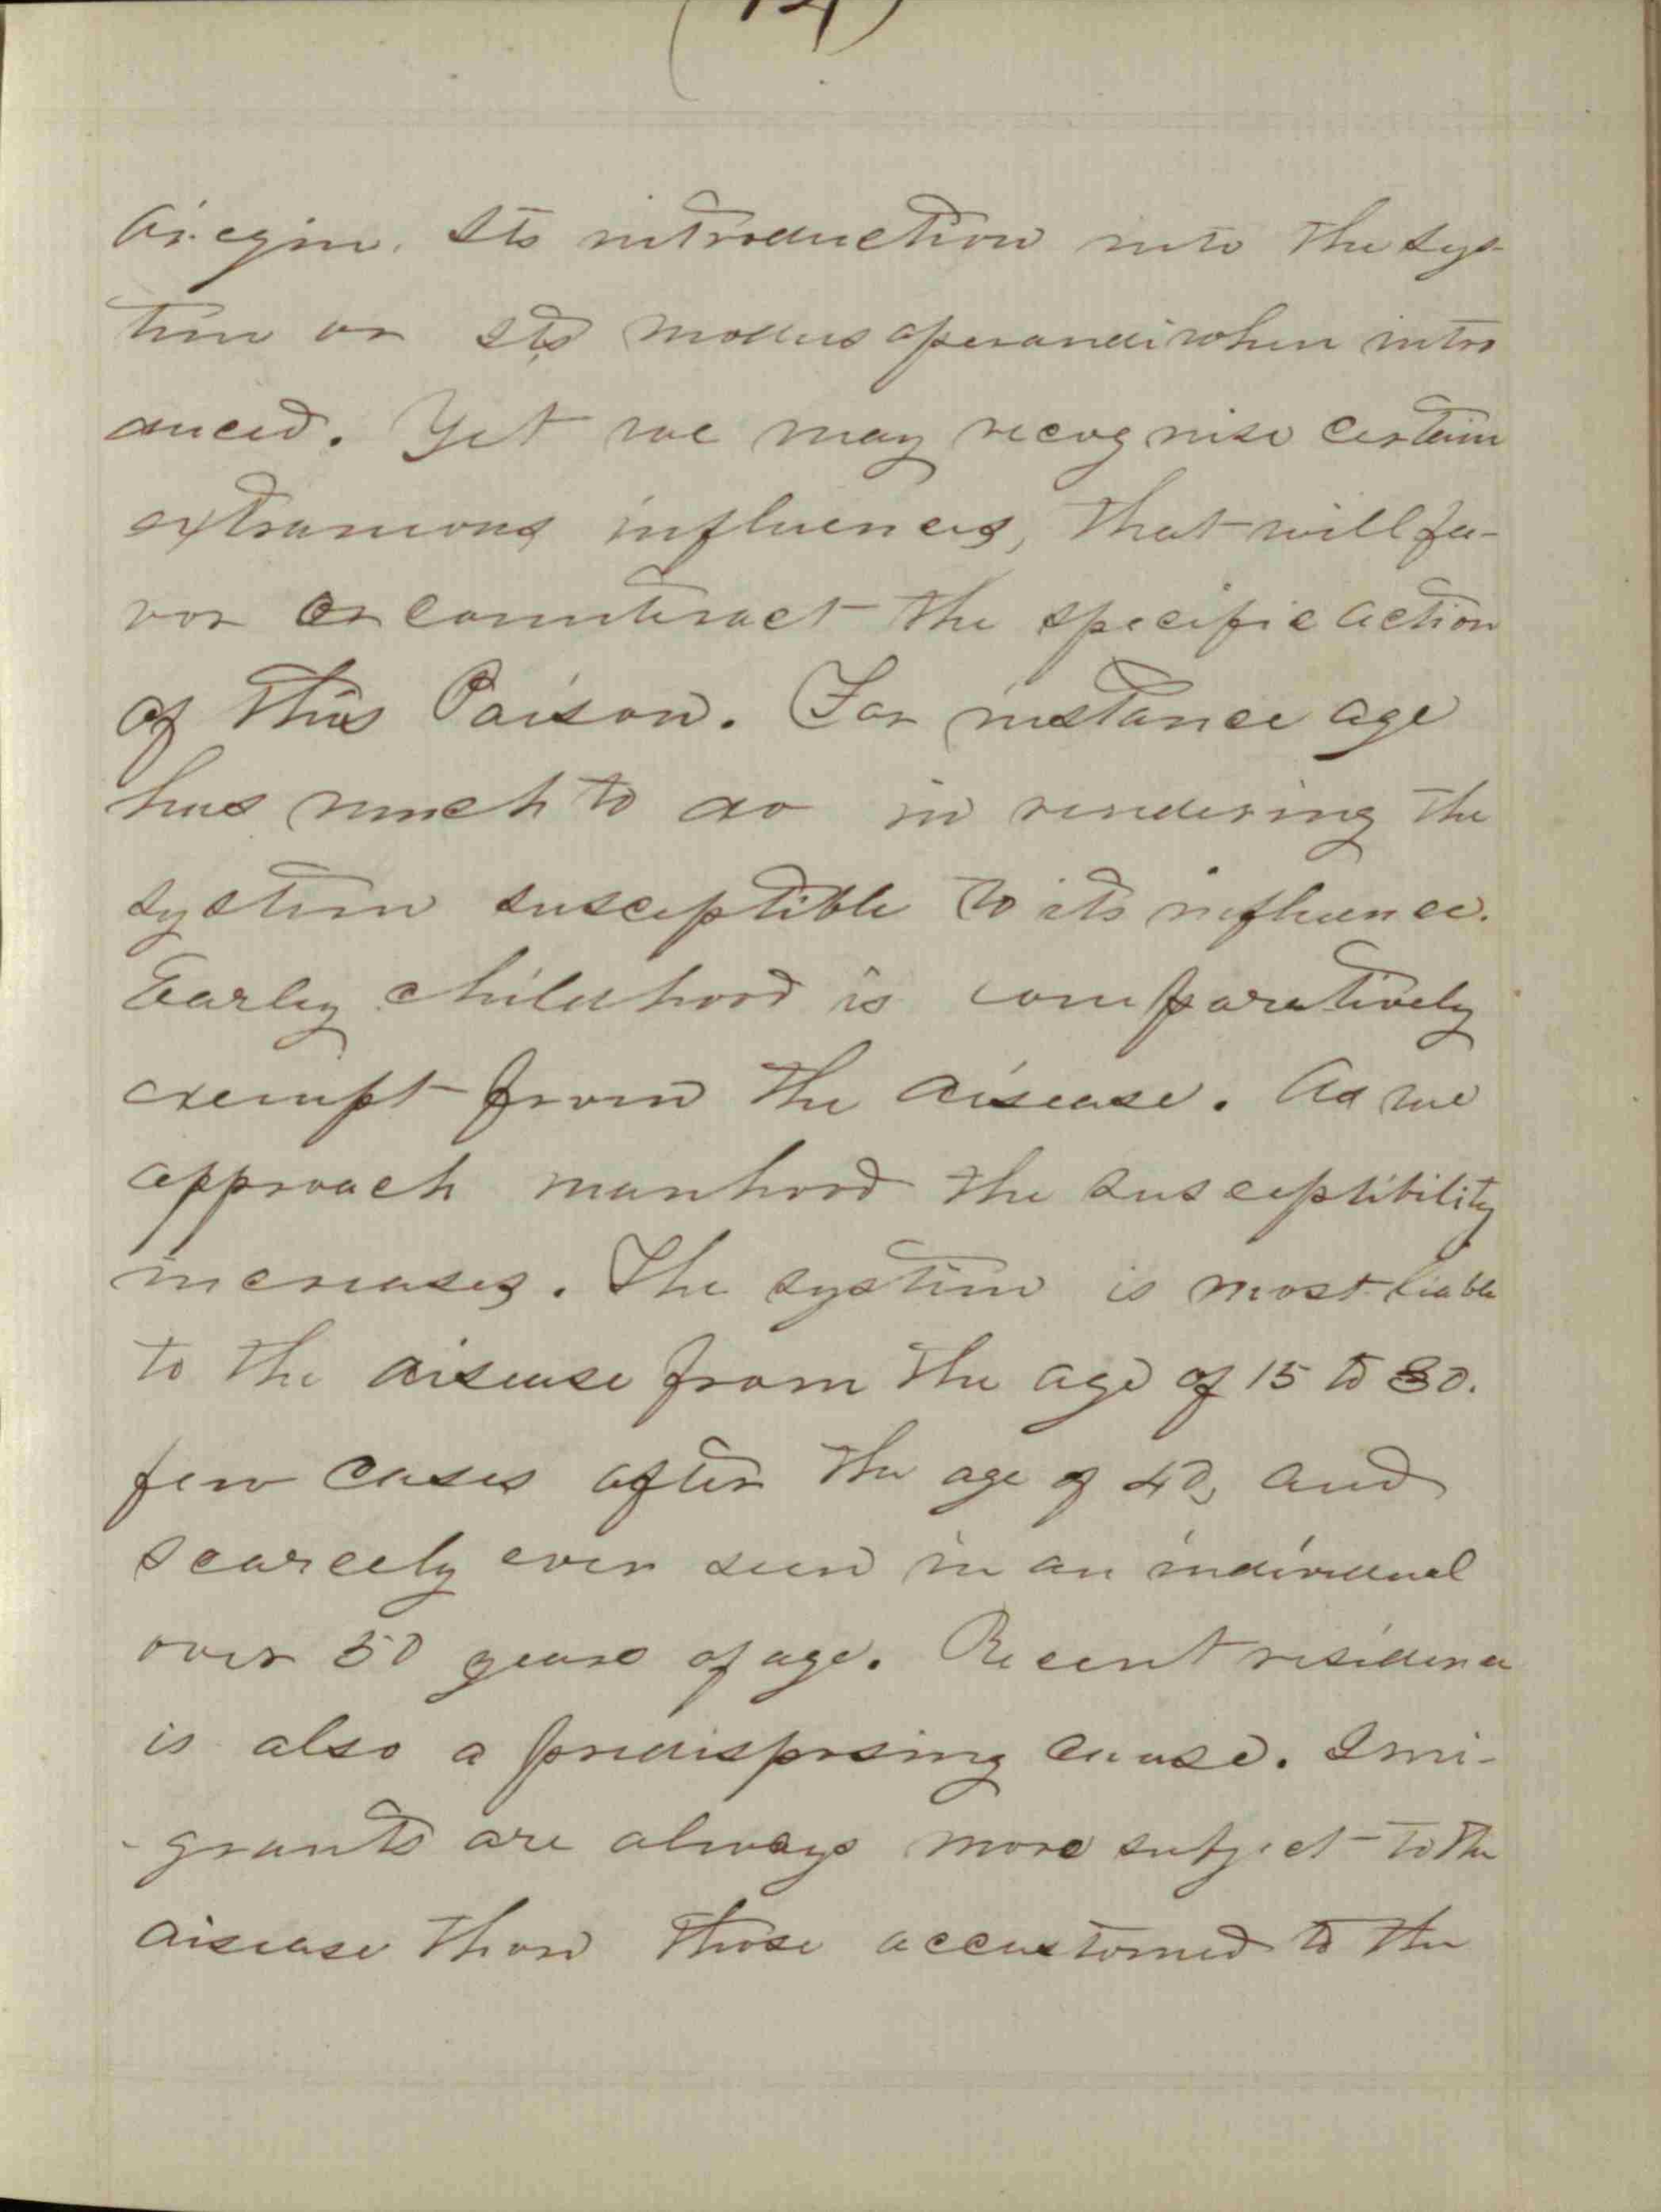 (14)
Origin. Its introduction into the sys-
tem or its modus operandi when intro
duced. Yet we may recognise certain
extraneous influences, that will fa-
vor or counteract the specific action
of this Poison. For instance age
has much to do in rendering the
system susceptible to its influence.
Early childhood is comparatively
exempt from the disease. As we
approach manhood the susceptibility
increases. The system is most liable
to the disease from the age of 15 to 30.
few cases after the age of 40, and
scarcely ever seen in an individual
over 50 years of age. Recent residence
is also a predisposing cause. Imi-
-grants are always more subject to the
disease than those accustomed to the